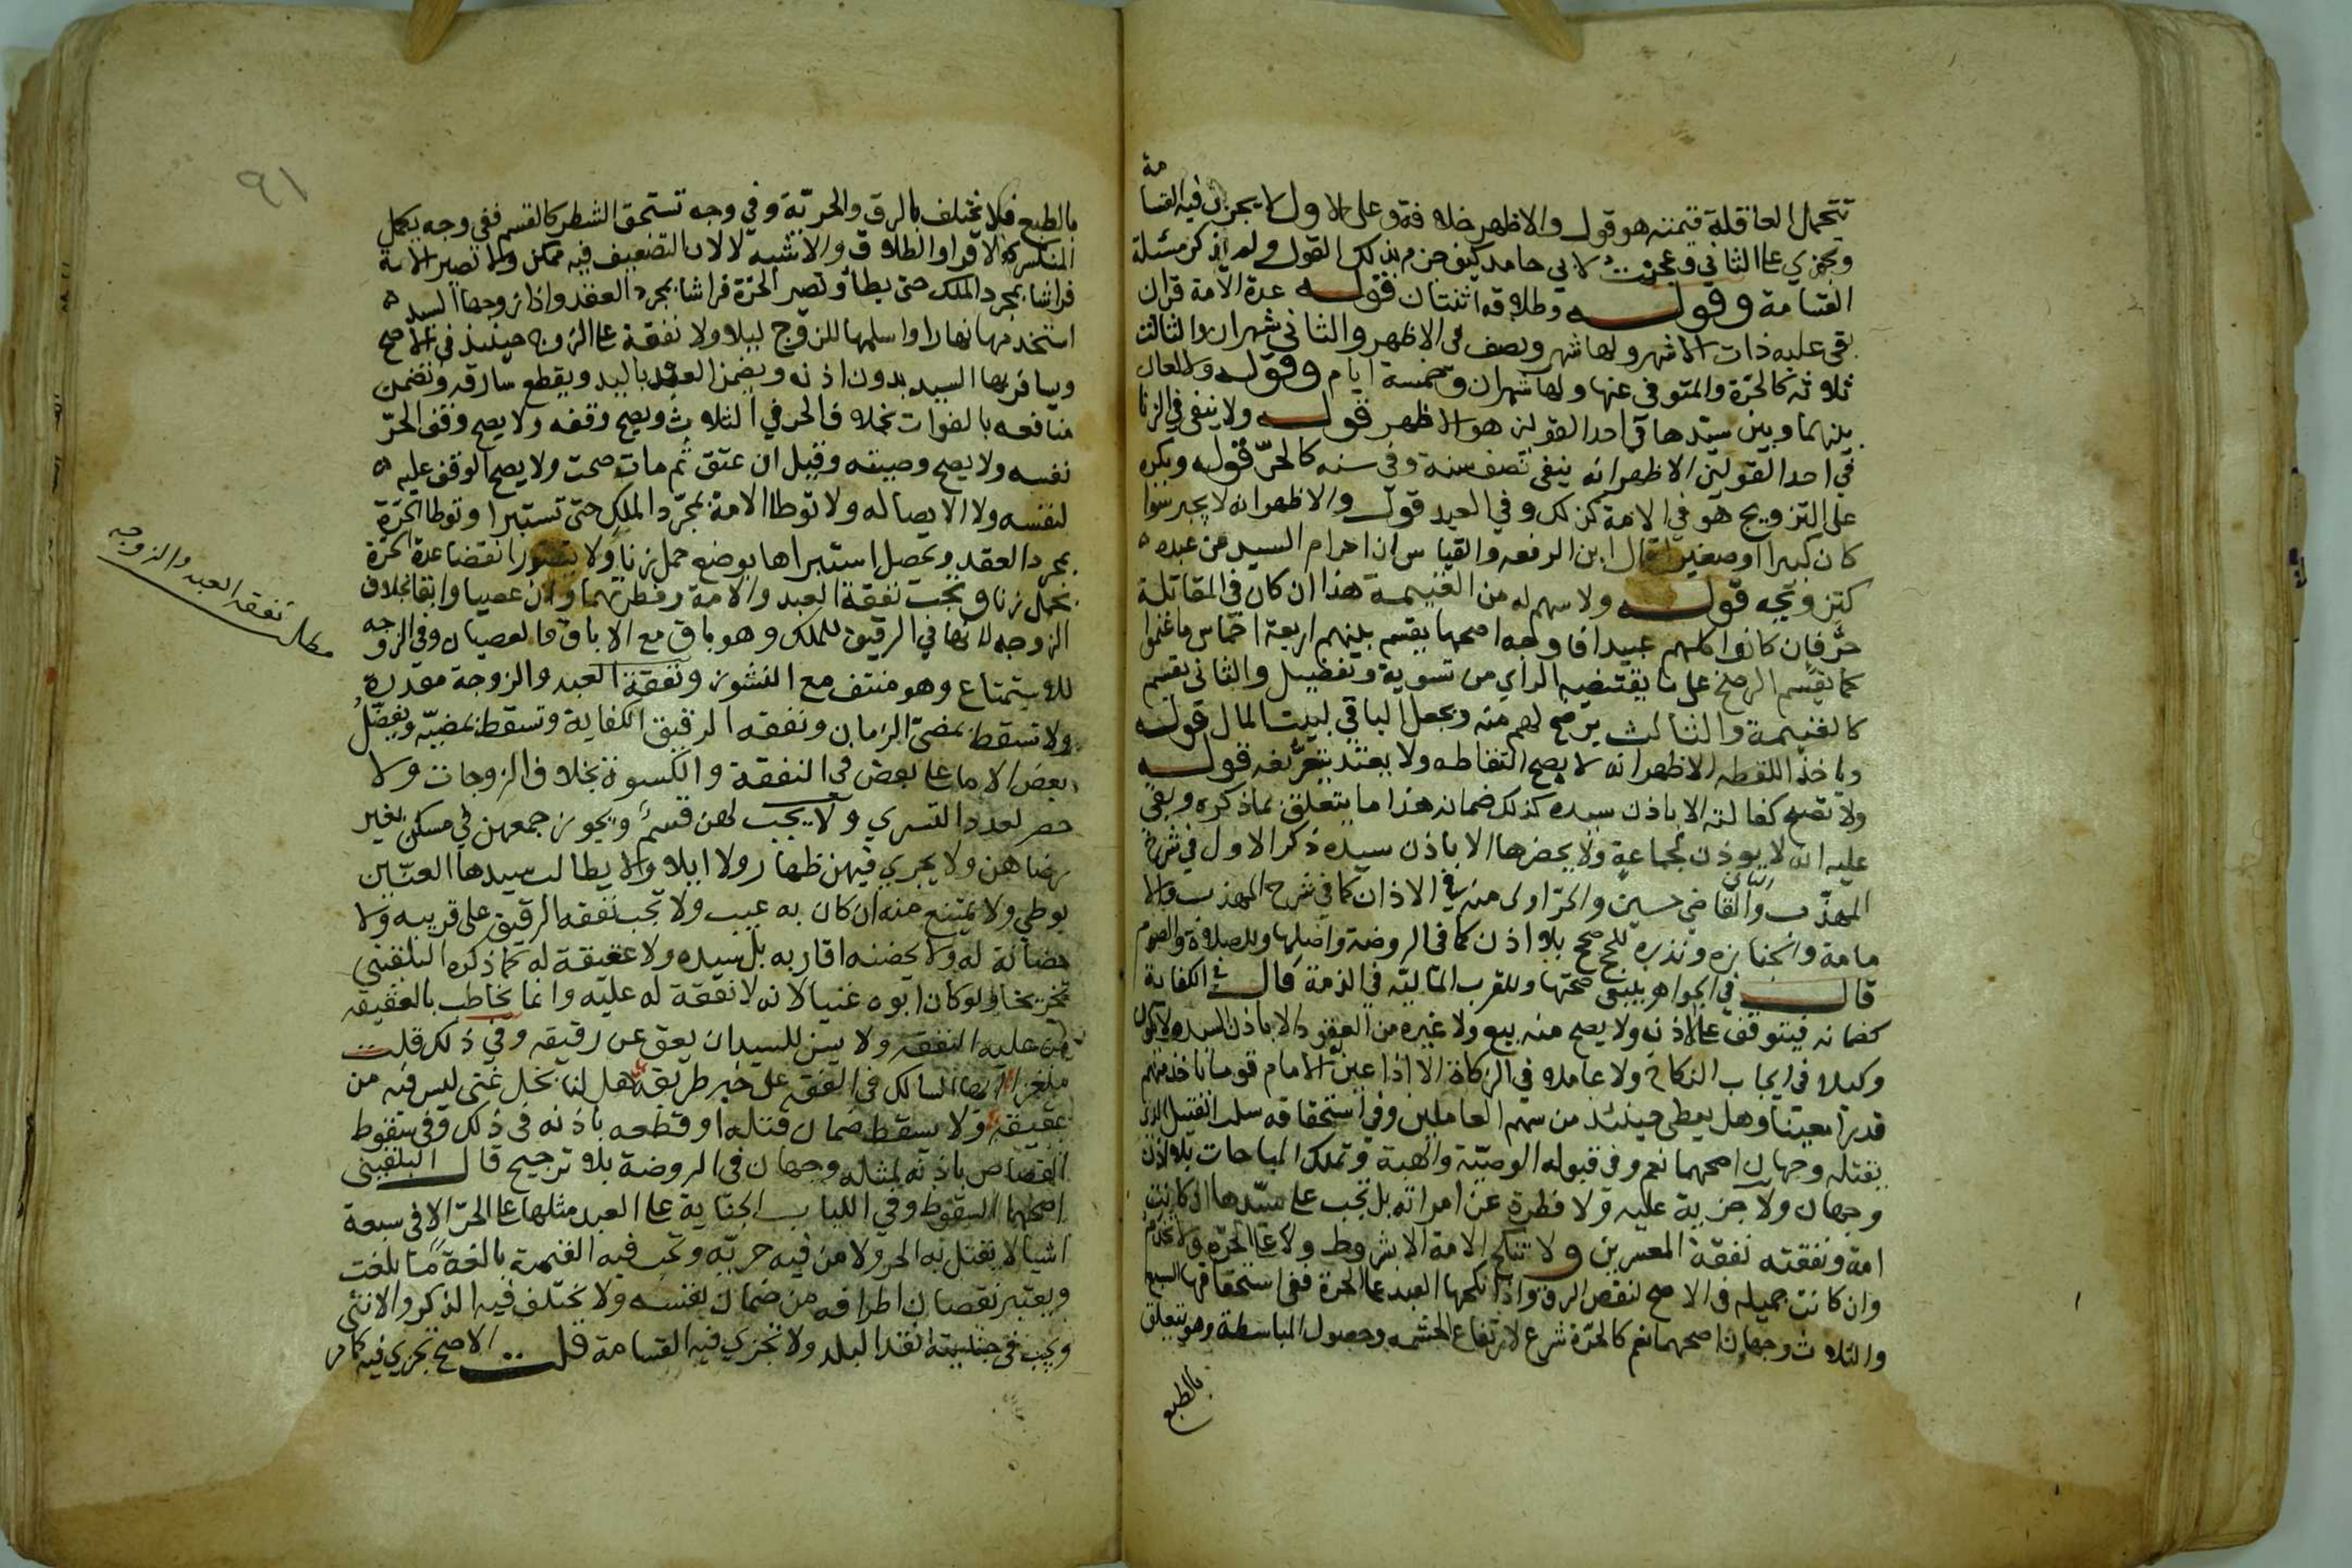 مة
تتحمل العاقلة قيمته هو قول والاظهر خلافه وعلى الاول لا يجري فيه القسا
ويجزي على الثاني وعجبت لابي حامد كيف جزم بذلك القول ولم اذكر مسئلة
القسامة وقوله وطلاقه اثنتان قوله عدة الامة قران
بقى عليه ذات الاشهر ولها شهر ونصف في الاظهر والثاني شهران والثالث
ثلاثة كالحرة والمتوفى عنها ولها شهران وخمسة ايام وقوله ولا لعان
بينهما وبين سيدها في احد القولين هو الاظهر قوله ولا ينفى في الزنا
في احد القولين الاظهر انه ينفى نصف سنة وفي سنه كالحر قوله ويكره
على التزويج هو في الامة كذلك وفي العبد قول والاظهر انه لا يجبر سوا
كان كبيرا او صغيرا قال ابن الرفعه والقياس ان احرام السيد عن عبده
كتزويجه قوله ولا سهم له من الغنيمة هذا ان كان في المقاتلة
حر فان كانوا كلهم عبيدا فاوجه اصحها يقسم بينهم اربعة اخماس ما غنموا
كما يقسم الرضخ على ما يقتضيه الراي من تسوية وتفضيل والثاني يقسم
كالغنيمة والثالث يرضخ لهم منه ويجعل الباقي لبيت المال قوله
وياخذ اللقطه الاظهر انه لا يصح التقاطه ولا يعتد بتعريفه قوله
ولا تصح كفالته الا باذن سيده كذلك ضمانه هذا ما يتعلق بما ذكره وبقي
عليه انه لا يوذن لجماعة ولا يحضرها الا باذن سيده ذكر الاول في شرح
المهذب والثاني القاضي حسين والحر اولى منه في الاذان كما في شرح المهذب والا
مامة والجنازه ونذره للحج صحيح بلا اذن كما في الروضة واصلها وللصلاة والصوم
قال في الجواهر ينبغي صحتها وللقرب الماليه في الذمة قال في الكفاية
كضمانه فيتوقف على الاذن ولا يصح منه بيع ولا غيره من العقود الا باذن السيد ولا يكون
وكيلا في ايجاب النكاح ولا عاملا في الزكاة الا اذا عين الامام قوما ياخذ منهم
قدرا معينا وهل يعطى حينئذ من سهم العاملين وفي استحقاقه سلب القتيل الذي
يقتله وجهان اصحهما نعم وفي قبوله الوصية والهبة وتملك المباحات بلا اذن
وجهان ولا جزية عليه ولا فطرة عن امراته بل تجب على سيدها ان كانت
امة ونفقته نفقة المعسرين ولا تنكح الامة الا بشروط ولا على الحرة ولا تخدم
وان كانت جميله في الاصح لنقص الرق واذا نكحها العبد على الحرة ففي استحقاقها السبع
والثلاث وجهان اصحهما نعم كالحرة شرع لارتفاع الحشمه وحصول المباسطة وهو يتعلق
بالطبع
٩١
بالطبع فلا يختلف بالرق والحرية وفي وجه تستحق الشطر كالقسم ففي وجه يكمل
المنكسر كالاقرا والطلاق والاشبه لا لان التضعيف فيه ممكن ولا تصير الامة
فراشا بمجرد الملك حتى يطأ وتصير الحرة فراشا بمجرد العقد واذا زوجها السيد
استخدمها نهارا واسلمها للزوج ليلا ولا نفقة على الزوج حينئذ في الاصح
ويسافر بها السيد بدون اذنه ويضمن العبد باليد ويقطع سارقه وتضمن
منافعه بالفوات بخلاف الحر في الثلاث ويصح وقفه ولا يصح وقف الحر
نفسه ولا يصح وصيته وقيل ان عتق ثم مات صحت ولا يصح الوقف عليه
لنفسه ولا الايصا له ولا توطا الامة بمجرد الملك حتى تستبرا وتوطا الحرة
بمجرد العقد ويحصل استبراها بوضع حمل زنا ولا يتصور انقضا عدة الحرة
بحمل زنا وتجب نفقة العبد والامة وفطرتهما وان عصيا وابقا بخلاف
الزوجه لانها في الرقيق للملك وهو باق مع الاباق والعصيان وفي الزوجه
للاستمتاع وهو منتف مع النشوز ونفقة العبد والزوجة مقدرة
ولا تسقط بمضي الزمان ونفقه الرقيق الكفاية وتسقط بمضيه ويفضل
بعض الاما على بعض في النفقة والكسوة بخلاف الزوجات ولا
حصر لعدد التسري ولا يجب لهن قسم ويجوز جمعهن في مسكن بغير
رضاهن ولا يجري فيهن ظهار ولا ايلا ولا يطالب سيدها العنين
بوطي ولا يمتنع منه ان كان به عيب ولا تجب نفقه الرقيق على قريبه ولا
حضانة له ولا يحضنه اقاربه بل سيده ولا عقيقة له كما ذكره البلقيني
تخريجا ولو كان ابوه غنيا لانه لا نفقة له عليه وانما يخاطب بالعقيقه
من عليه النفقه ولا يسن للسيد ان يعق عن رقيقه وفي ذلك قلت
ملغزا ايها السالك في الفقه على خير طريقه هل لنا نجل غني ليس فيه من
عقيقه ولا يسقط ضمان قتله او قطعه باذنه في ذلك وفي سقوط
القصاص باذنه لمثله وجهان في الروضة بلا ترجيح قال البلقيني
اصحهما السقوط وفي اللباب الجناية على العبد مثلها على الحر الا في سبعة
اشيا لا يقتل به الحر ولا من فيه حرية وتجب فيه القيمة بالغة ما بلغت
ويعتبر نقصان اطرافه من ضمان نفسه ولا يختلف فيه الذكر والانثى
ويجب في جنايته نقد البلد ولا تجزي فيه القسامة قلت الاصح تجري فيه كما مر
مطلب نفقه العبد والزوجه